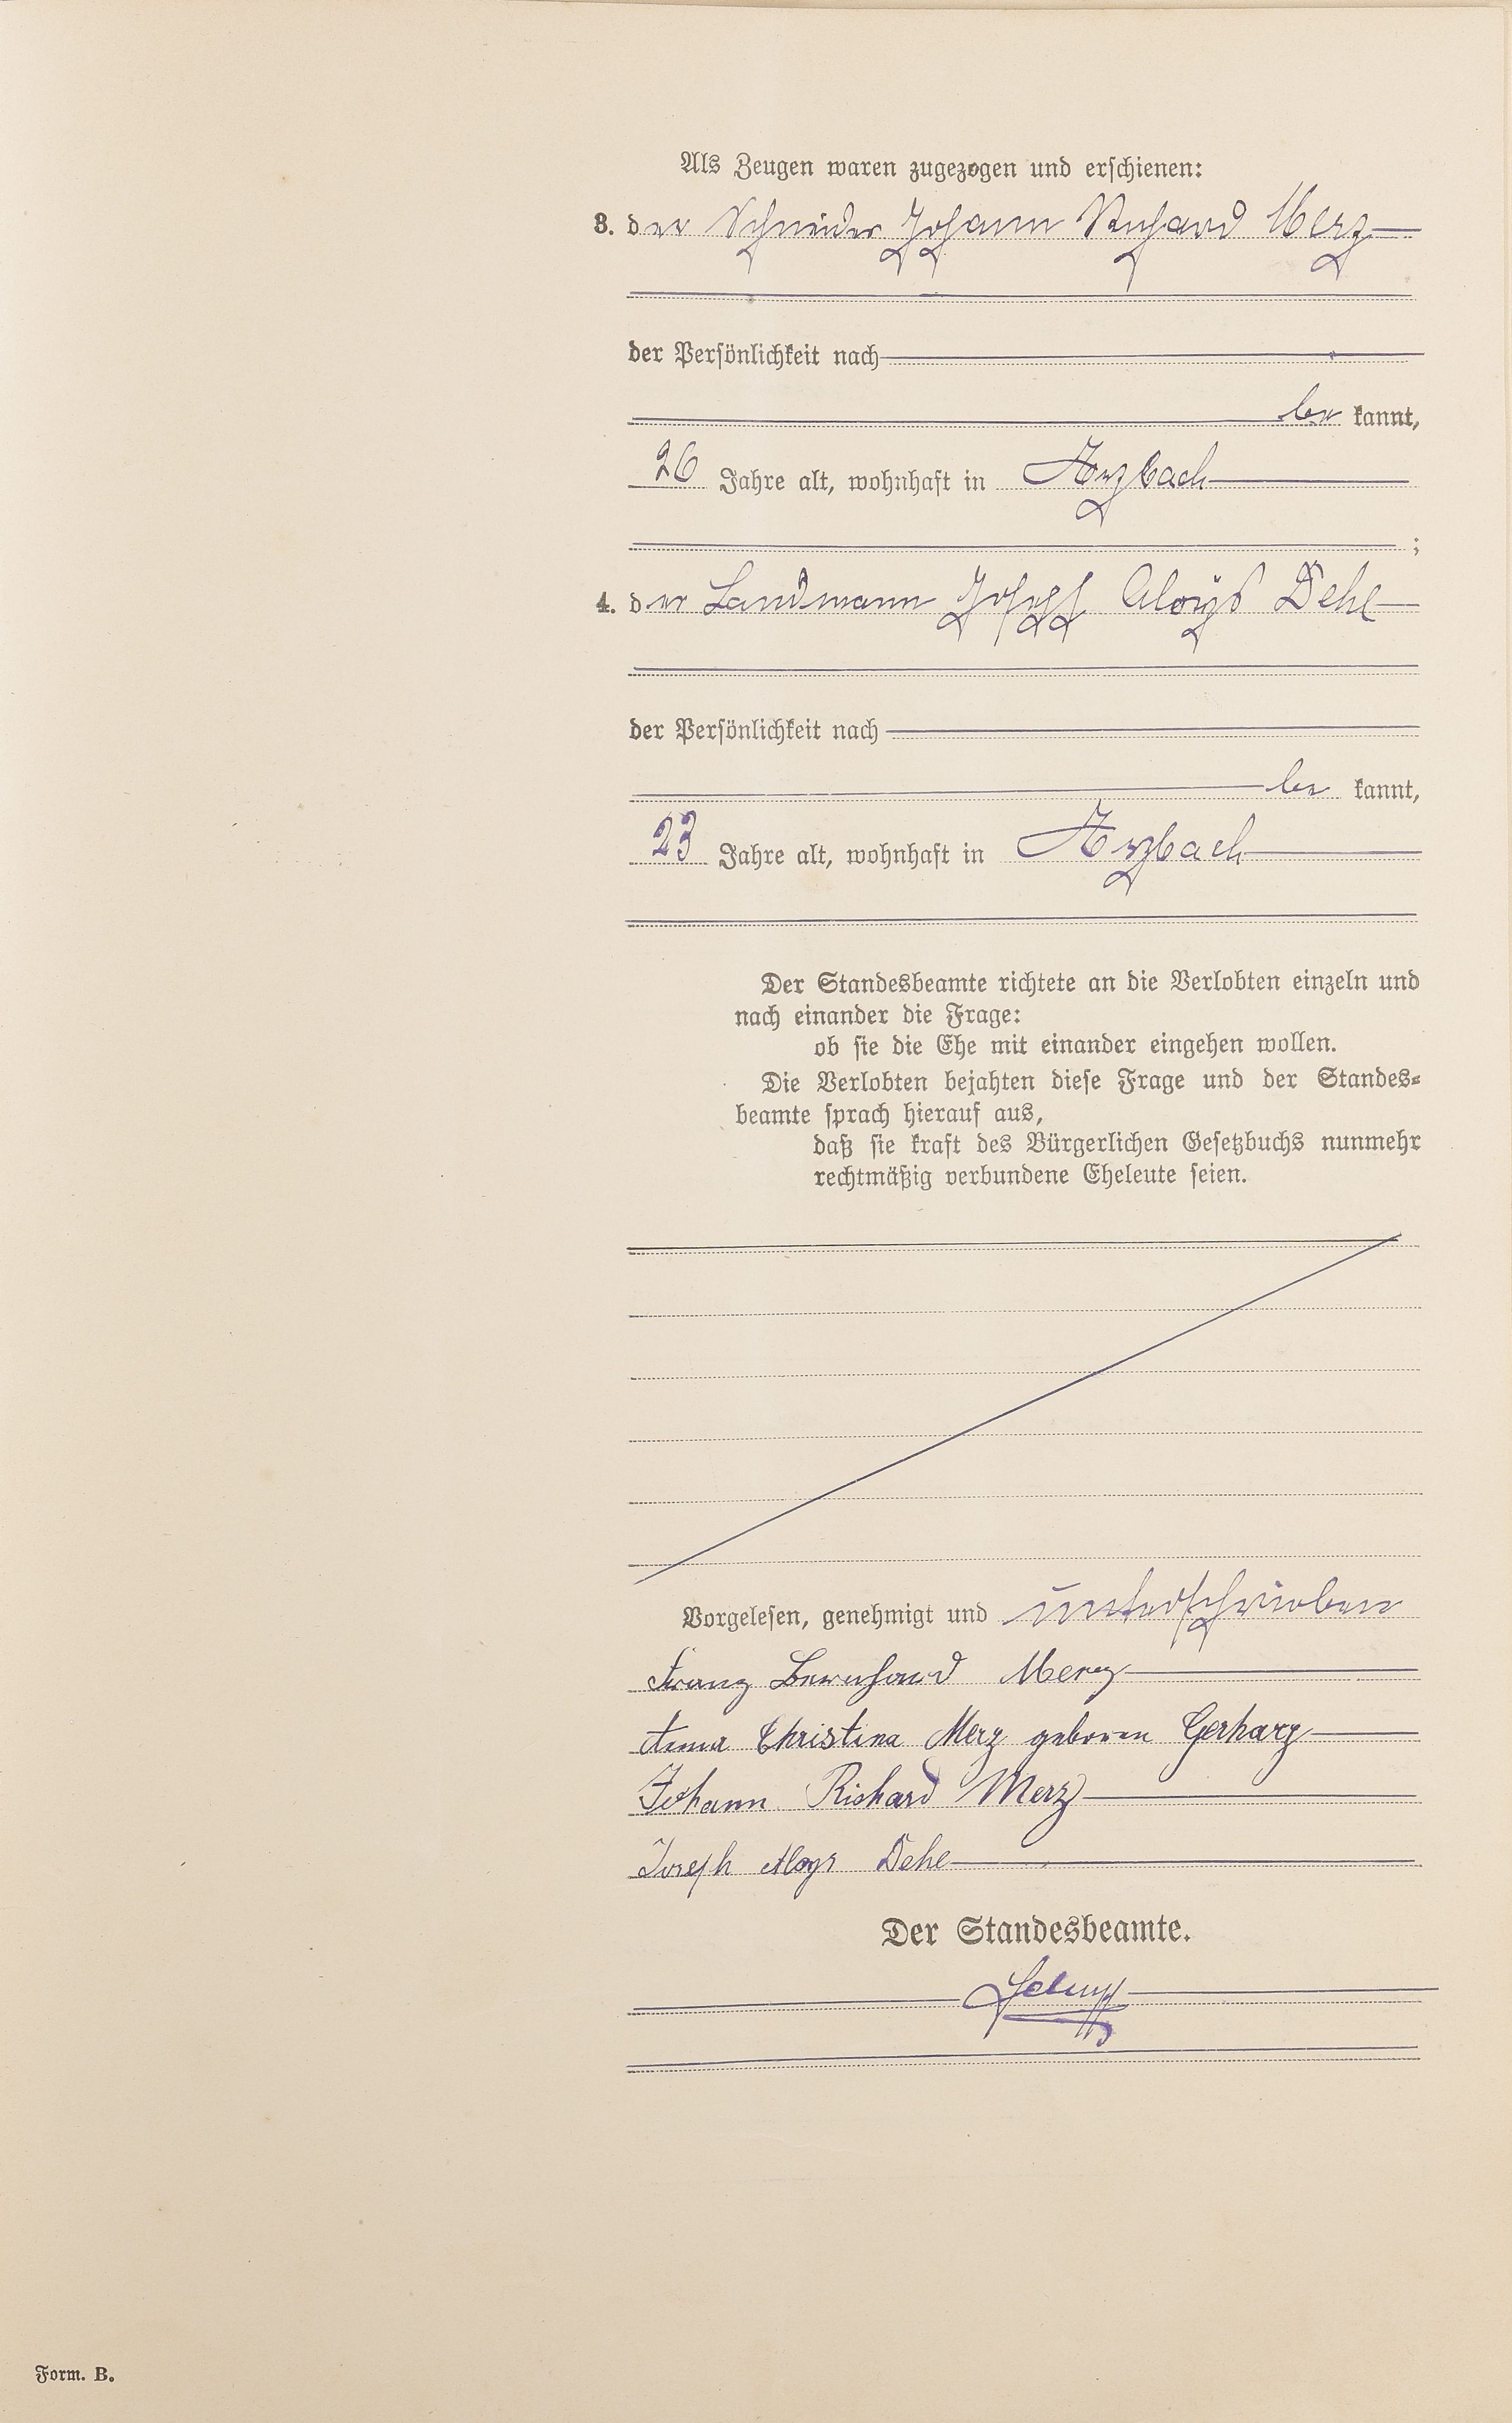 Als Zeugen waren zugezogen und erschienen:
3. der Schneider Johann Richard Merz
der Persönlichkeit nach
be kannt,
26 Jahre alt, wohnhaft in Arzbach
;
4. der Landmann Joseph Aloys Dehe
der Persönlichkeit nach
be kannt,
23 Jahre alt, wohnhaft in Arzbach
Der Standesbeamte richtete an die Verlobten einzeln und
nach einander die Frage:
ob sie die Ehe mit einander eingehen wollen.
Die Verlobten bejahten diese Frage und der Standes-
beamte sprach hierauf aus,
daß sie kraft des Bürgerlichen Gesetzbuchs nunmehr
rechtmäßig verbundene Eheleute seien.
Vorgelesen, genehmigt und unterschrieben
Franz Bernhard Merz
Anna Christina Merz geboren Gerharz
Johann Richard Merz
Joseph Aloys Dehe
Der Standesbeamte.
Form. B.